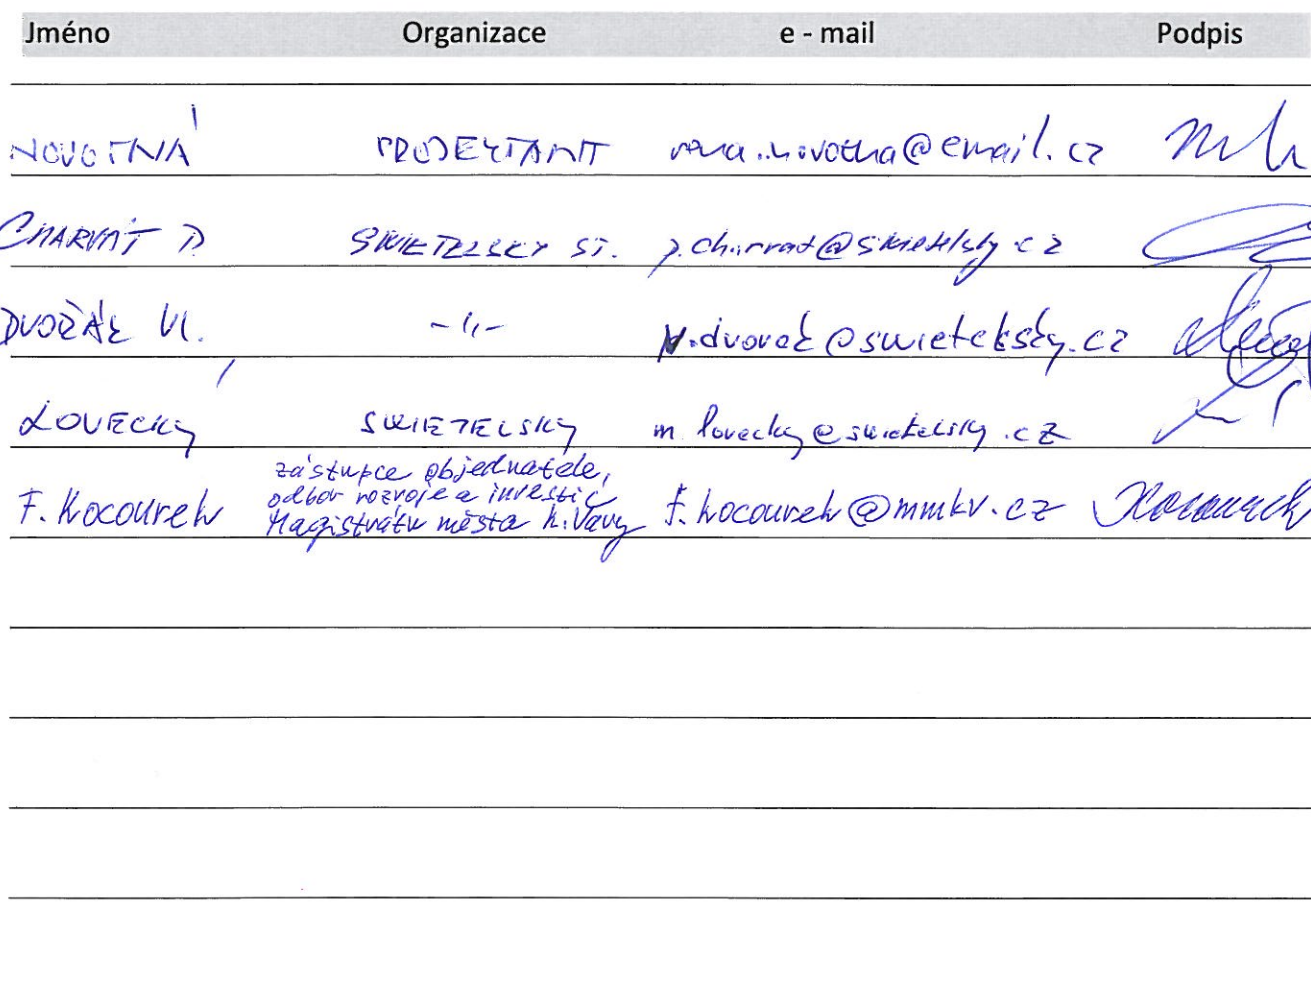 Jméno Organizace e - mail Podpis
NOVOTNÁ PROJEKTANT @email.cz
CHARVÁT P. SWIETELSKY ST. p.charvat@swietelsky.cz
DVOŘÁK Vl. -"- v.dvorak@swietelsky.cz
LOVECKÝ SWIETELSKY m.lovecky@swietelsky.cz
zástupce objednatele,
odbor rozvoje a investic
F. Kocourek Magistrátu města K. Vary f.kocourek@mmkv.cz Kocourek